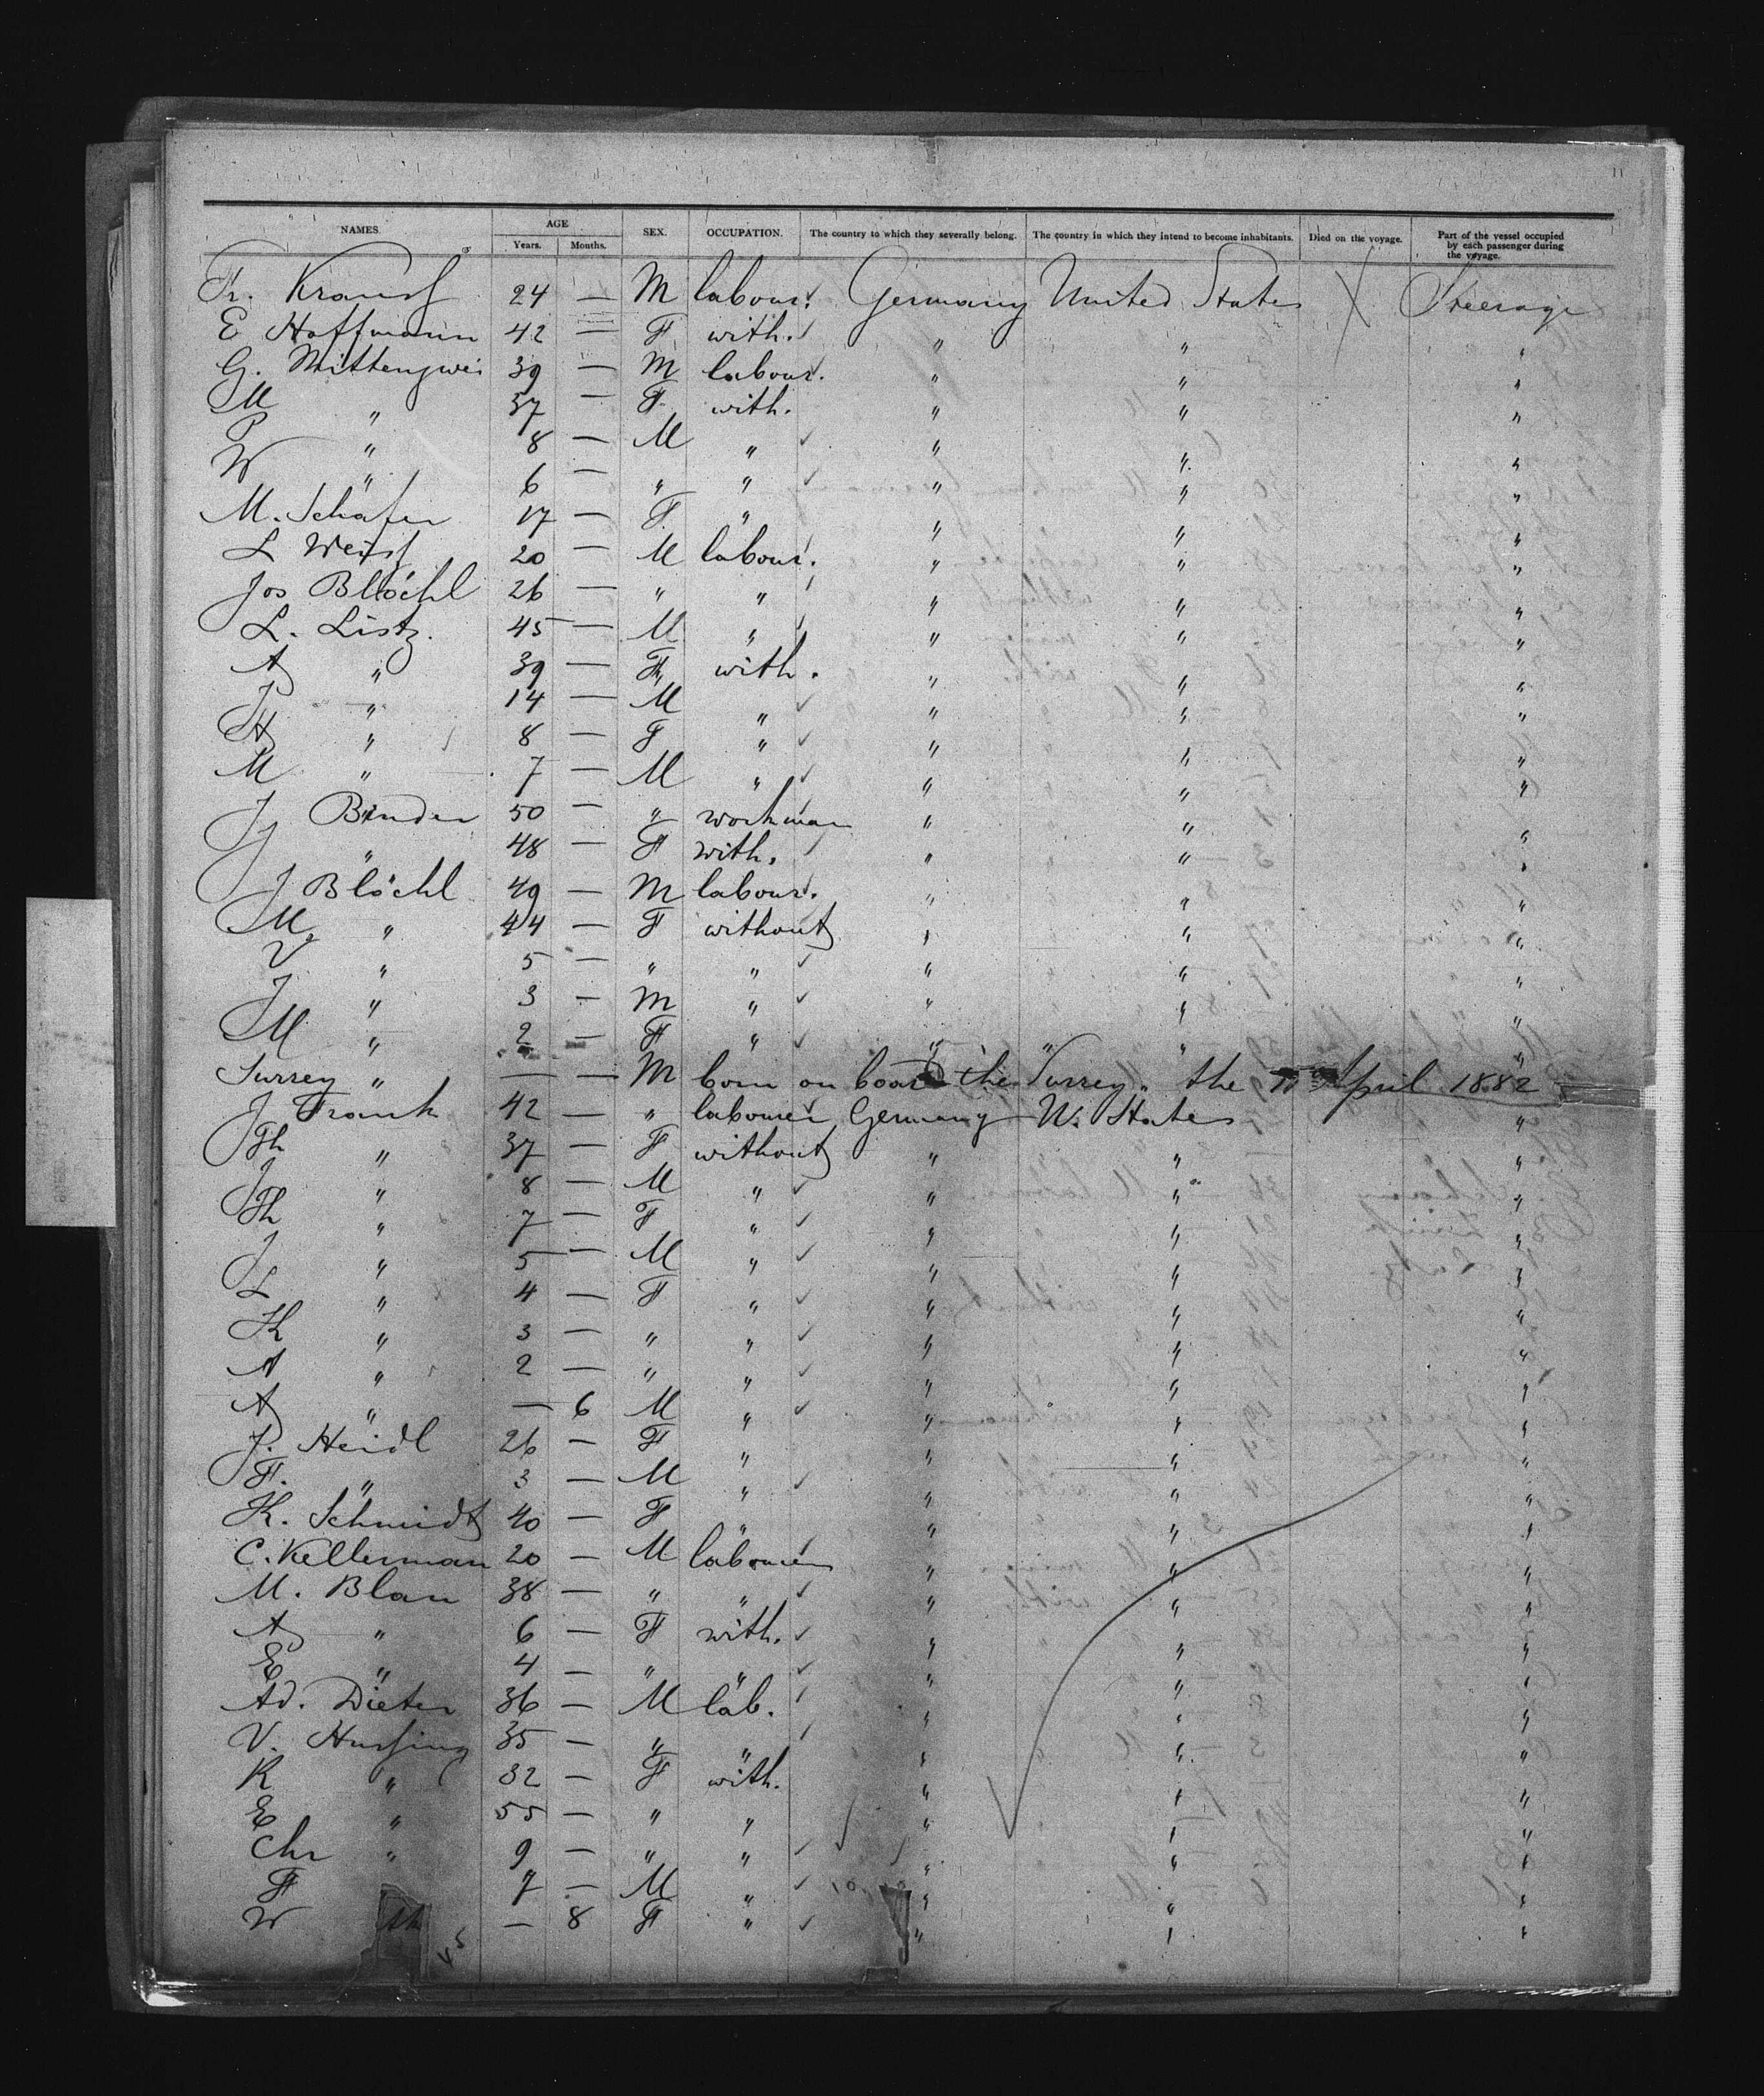 NAMES. AGE Years. Months. SEX. OCCUPATION. The country to which they severally belong. The country in which they intend to become inhabitants. Died on the voyage. Part of the vessel occupied by each passenger during the voyage.
Fr. Krausf 24 — M labour. Germany United States Steerage
E Hoffmann 42 — F with. " " "
G. Mittengwei 39 — M labour. " " "
M " 37 — F with. " " "
P " 8 — M " " " "
W " 6 — " " " " "
M. Schäfer 17 — F " " " "
L Weisf 20 — M labour. " " "
Jos Blöchl 26 — " " " " "
L. Listz. 45 — M " " " "
A " 39 — F with. " " "
J " 14 — M " " " "
H " 8 — F " " " "
M " 7 — M " " " "
J Binder 50 — " workman " " "
J " 48 — F with. " " "
J Blöchl 49 — M labour. " " "
M. " 44 — F without " " "
V " 5 — " " " " "
J " 3 — M " " " "
M " 2 — F " " " "
Surrey " — — M born on board the "Surrey" the April 1882
J Frank 42 — " labourer Germany U. States "
Th " 37 — F without " " "
J " 8 — M " " " "
Th " 7 — F " " " "
J " 5 — M " " " "
L " 4 — F " " " "
K " 3 — " " " " "
A " 2 — " " " " "
A " — 6 M " " " "
J. Heidl 26 — F " " " "
F. " 3 — M " " " "
K. Schmidt 40 — F " " " "
C. Kellerman 20 — M labourer " " "
M. Blau 38 — " " " " "
A " 6 — F with. " " "
E " 4 — " " " " "
Ad. Dieter 36 — M lab. " " "
V. Hurfing 35 — " " " " "
K " 32 — F with. " " "
E " 55 — " " " " "
Chr " 9 — " " " " "
F 7 — M " " " "
W — 8 F " " " "